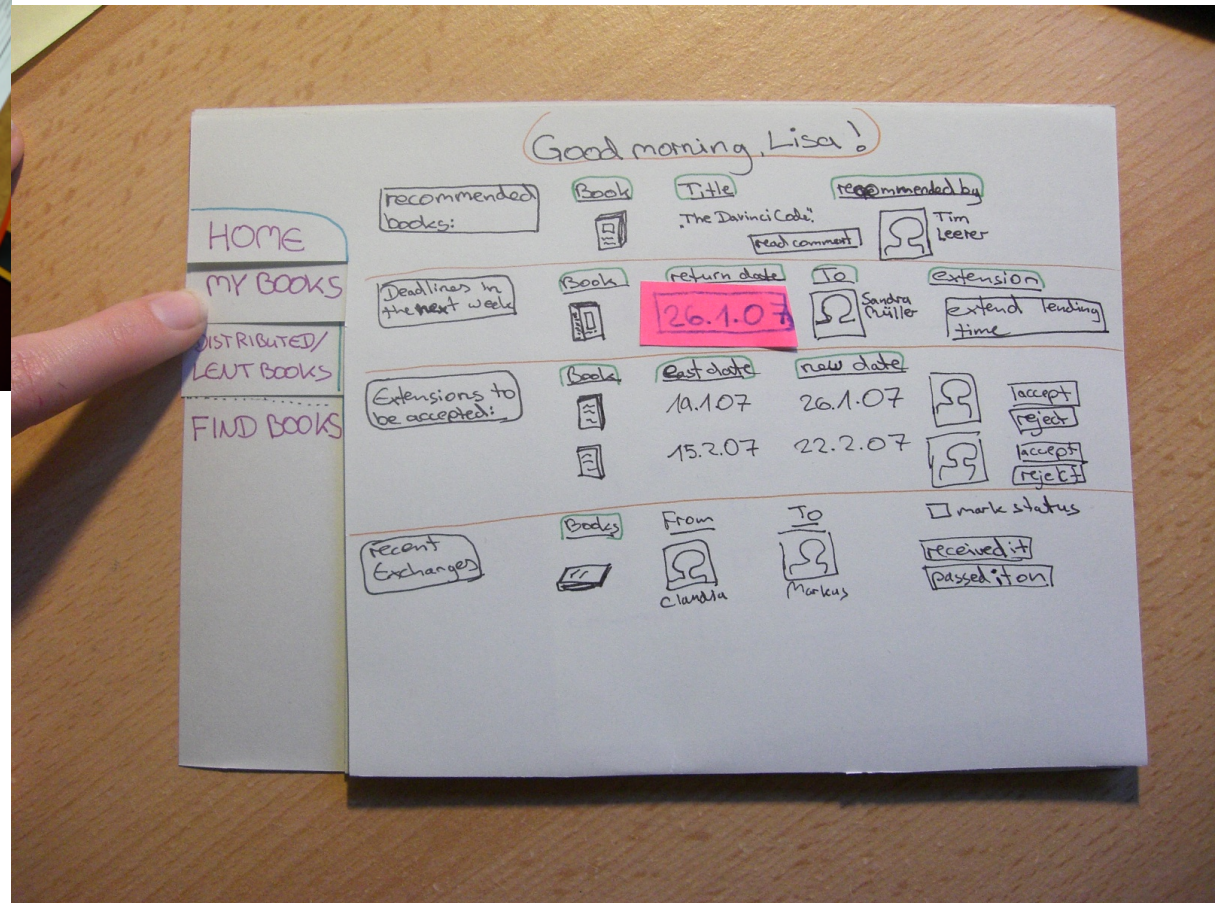 Good morning, Lisa!
HOME
MY BOOKS
DISTRIBUTED/
LENT BOOKS
FIND BOOKS
recommended
books:
Book
Title
recommended by
"The Davinci Code"
read comment
Tim
Leerer
Deadlines in
the next week
Book
return date
To
extension
26.1.07
Sandra
Müller
extend lending
time
Extensions to
be accepted:
Book
last date
new date
19.1.07
26.1.07
accept
reject
15.2.07
22.2.07
accept
reject
recent
Exchanges
Books
From
To
mark status
Claudia
Markus
received it
passed it on